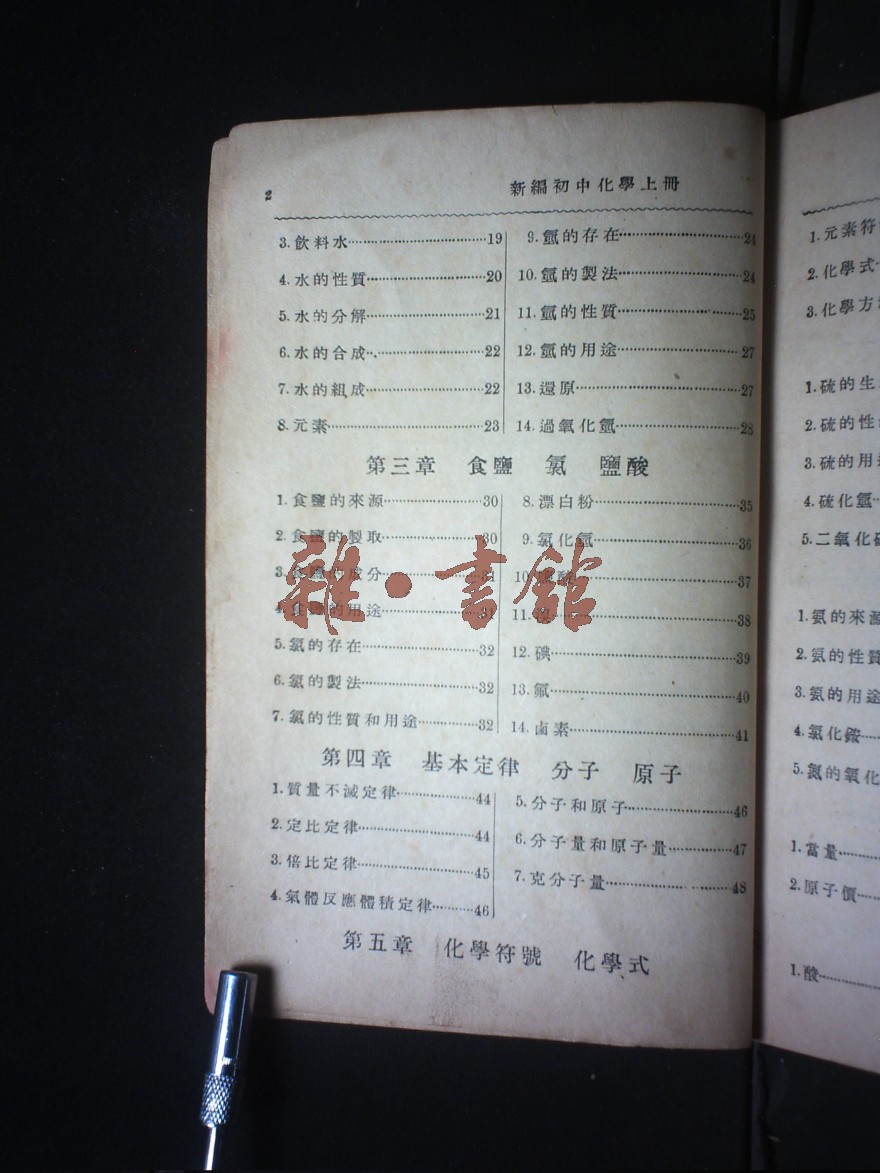 2
新編初中化學上冊
3.飲料水 19
4.水的性質 20
5.水的分解 21
6.水的合成 22
7.水的組成 22
8.元素 23
9.氫的存在 24
10.氫的製法 24
11.氫的性質 25
12.氫的用途 27
13.還原 27
14.過氧化氫 28
第三章 食鹽 氯 鹽酸
1.食鹽的來源 30
2.食鹽的製取 30
3.食鹽的成分 31
4.食鹽的用途 31
5.氯的存在 32
6.氯的製法 32
7.氯的性質和用途 32
8.漂白粉 35
9.氯化氫 36
10.鹽酸 37
11. 38
12.碘 39
13.氟 40
14.鹵素 41
雜·書館
第四章 基本定律 分子 原子
1.質量不滅定律 44
2.定比定律 44
3.倍比定律 45
4.氣體反應體積定律 46
5.分子和原子 46
6.分子量和原子量 47
7.克分子量 48
第五章 化學符號 化學式
1.元素符
2.化學式
3.化學方
1.硫的生
2.硫的性
3.硫的用
4.硫化氫
5.二氧化硫
1.氨的來源
2.氨的性質
3.氨的用途
4.氯化銨
5.氮的氧化
1.當量
2.原子價
1.酸